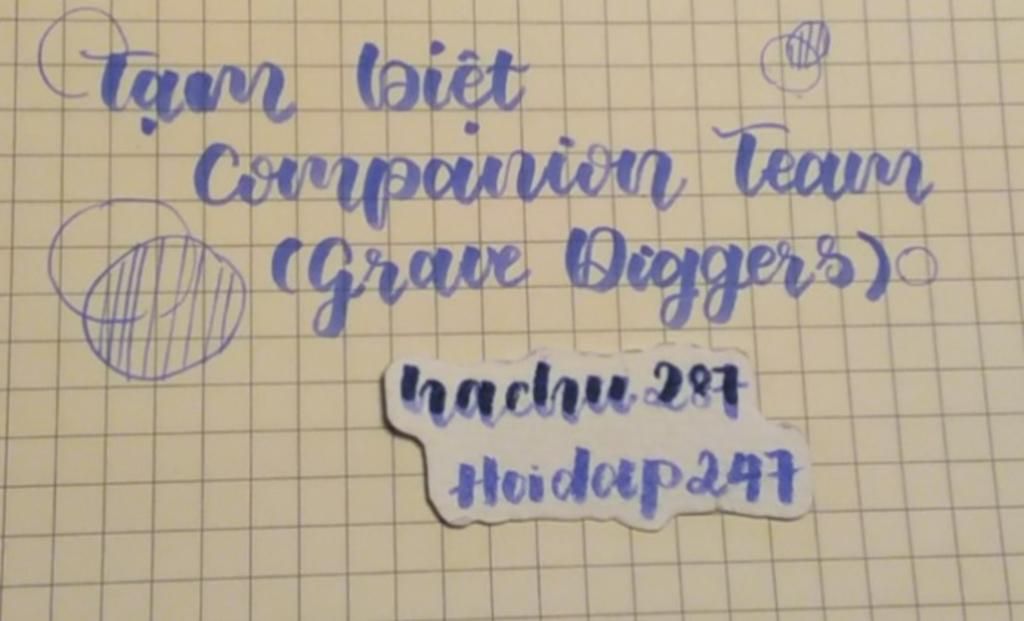 Tạm biệt
Companion Team
(Grave Diggers)
hachu287
Hoidap247